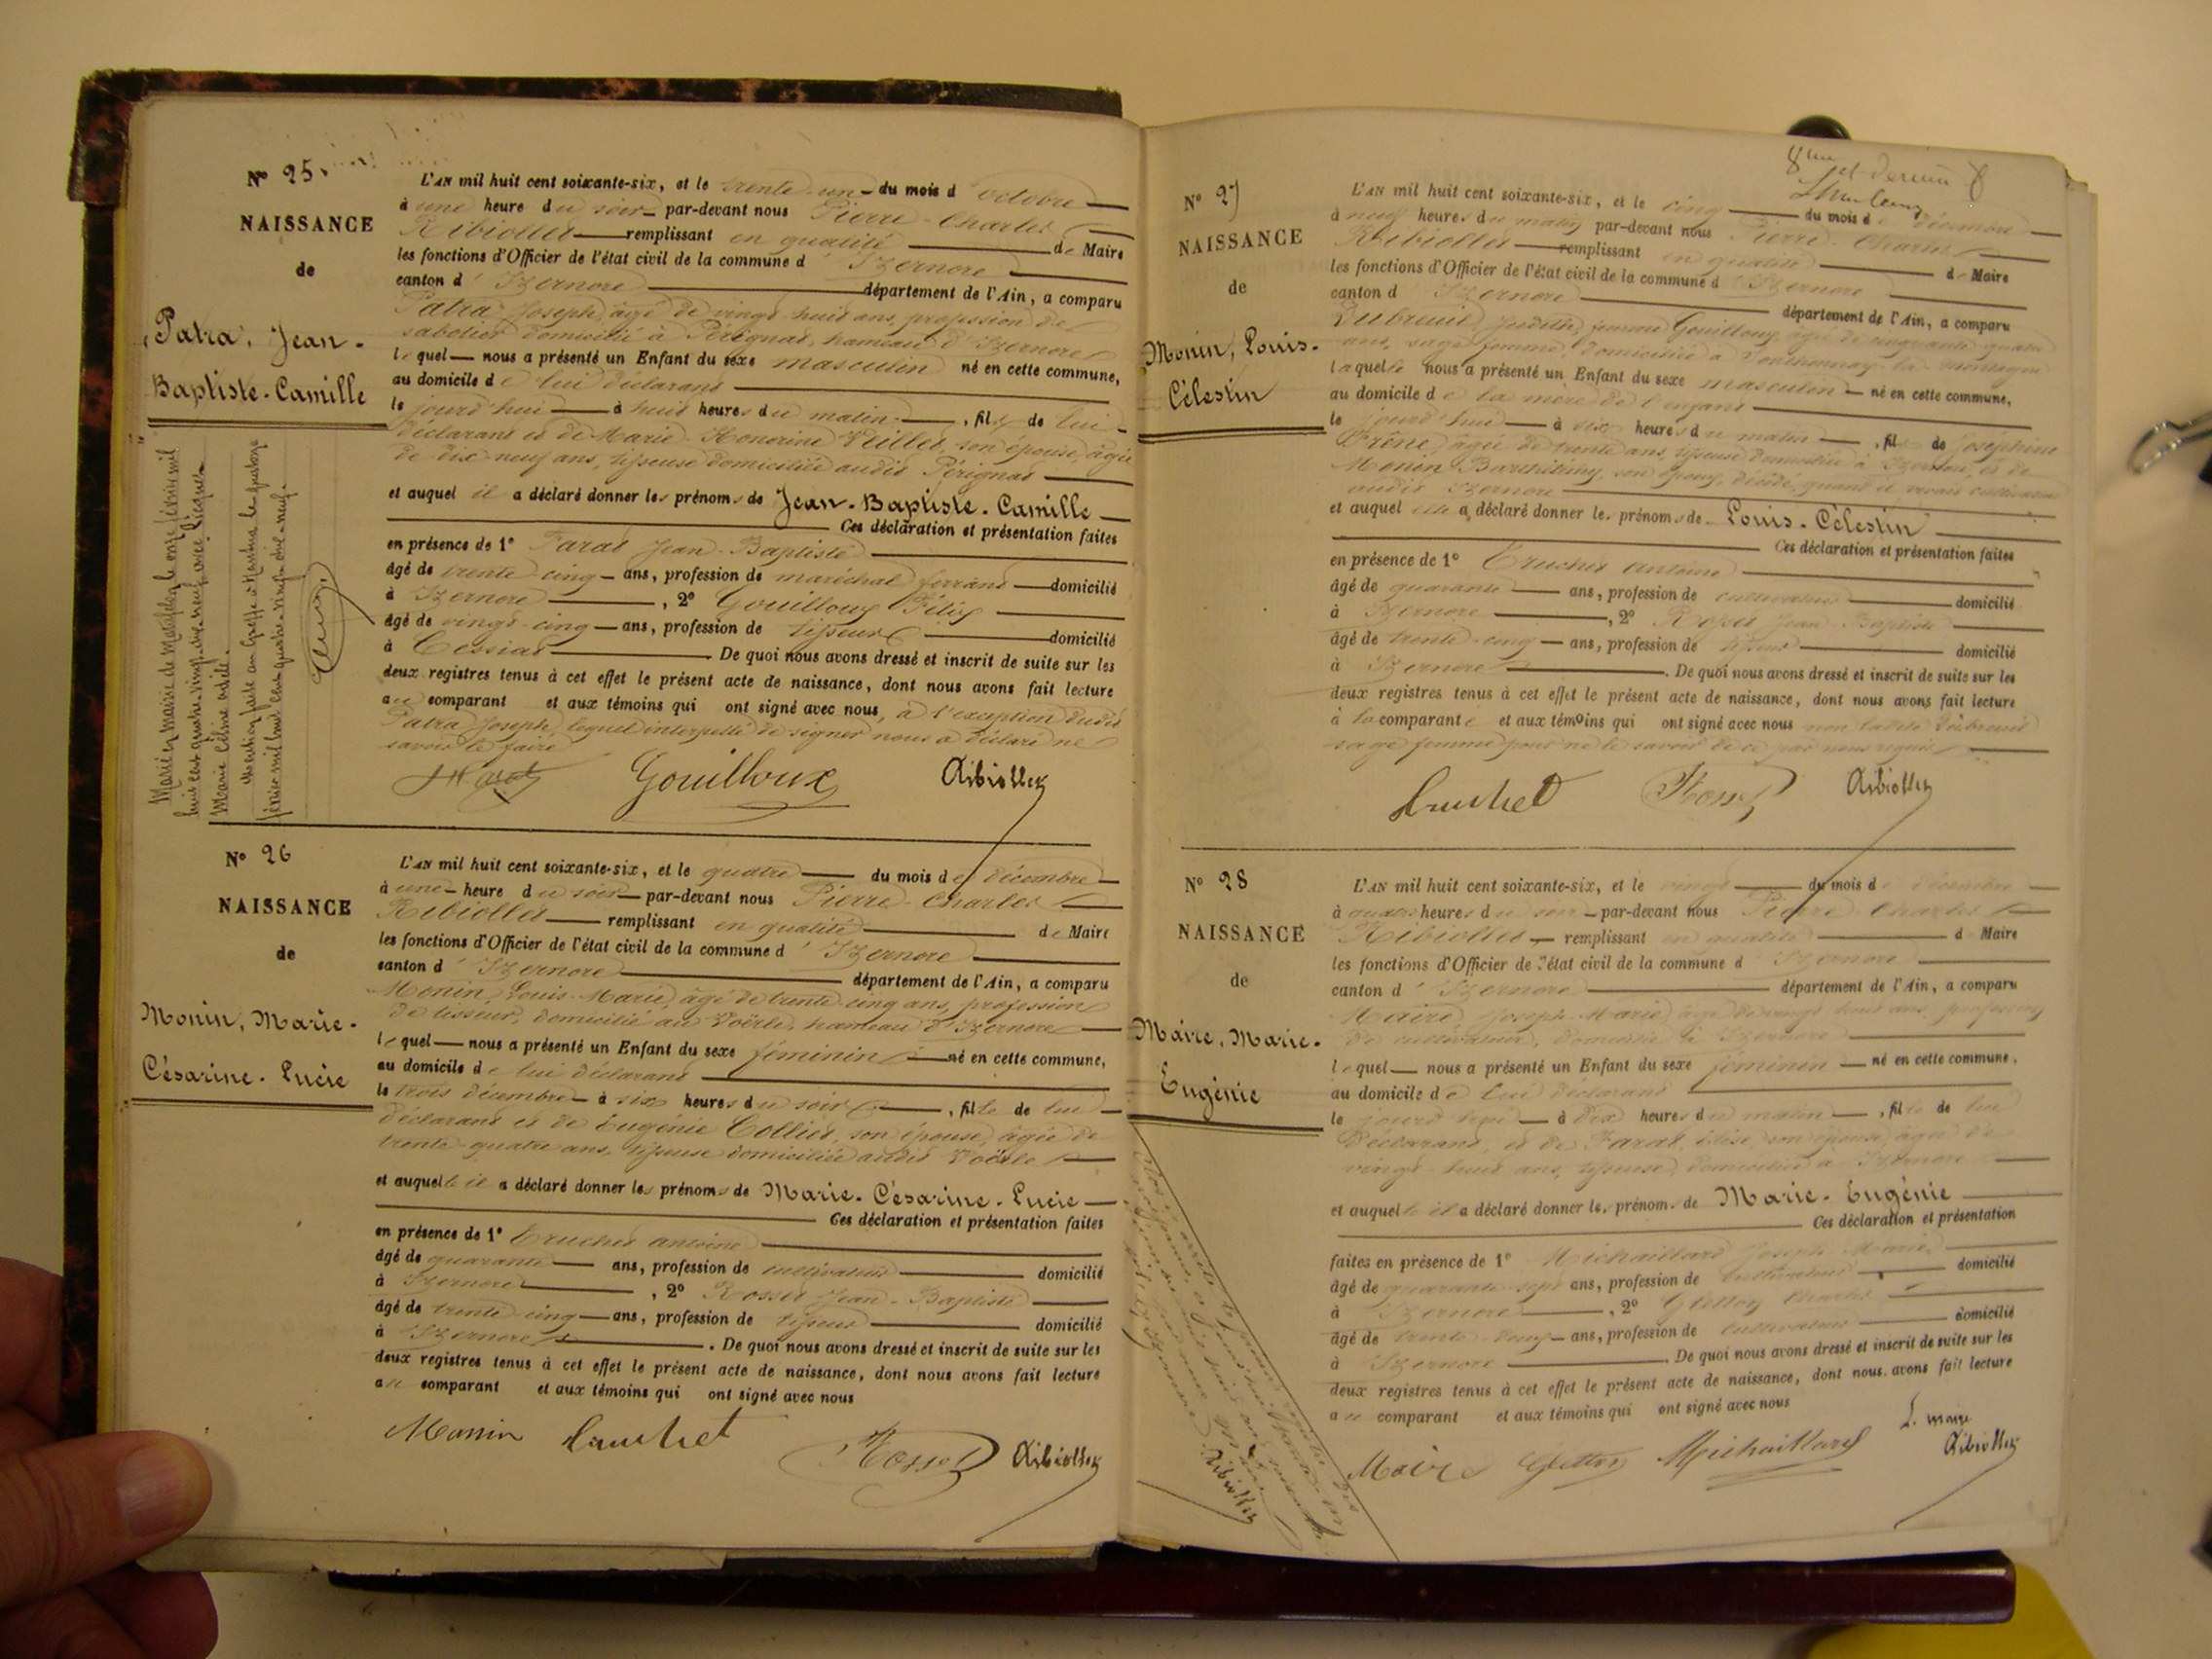 Nº 25.
NAISSANCE
de
Patra, Jean-
Baptiste-Camille
L'AN mil huit cent soixante-six, et le trente-un du mois d'octobre
à une heure du soir par-devant nous Pierre-Charles
Ribiollet remplissant en qualité de Maire
les fonctions d'Officier de l'état civil de la commune d'Izernore
canton d'Izernore département de l'Ain, a comparu
Patra Joseph, âgé de vingt-huit ans, profession de
sabotier domicilié à Pérignat, hameau d'Izernore
lequel nous a présenté un Enfant du sexe masculin né en cette commune,
au domicile de lui déclarant
le jourd'hui à huit heures du matin, fils de lui
déclarant et de Marie-Honorine Veillet, son épouse, âgée
de dix-neuf ans, tisseuse domiciliée audit Pérignat
et auquel il a déclaré donner les prénoms de Jean-Baptiste-Camille
Ces déclaration et présentation faites
en présence de 1º Farat Jean-Baptiste
âgé de trente-cinq ans, profession de maréchal ferrant domicilié
à Izernore, 2º Gouilloux Félix
âgé de vingt-cinq ans, profession de tisseur domicilié
à Cessiat De quoi nous avons dressé et inscrit de suite sur les
deux registres tenus à cet effet le présent acte de naissance, dont nous avons fait lecture
au comparant et aux témoins qui ont signé avec nous, à l'exception dudit
Patra Joseph, lequel interpellé de signer nous a déclaré ne
savoir le faire
Gouilloux Ribiollet
Marié en mairie de Matafelon le onze février mil
huit cent quatre-vingt-dix-neuf avec
Marie Céline
Mention faite au Greffe à Nantua le quatorze
février mil huit cent quatre-vingt-dix-neuf.
Nº 26
NAISSANCE
de
Monin, Marie-
Césarine-Lucie
L'AN mil huit cent soixante-six, et le quatre du mois de décembre
à une heure du soir par-devant nous Pierre-Charles
Ribiollet remplissant en qualité de Maire
les fonctions d'Officier de l'état civil de la commune d'Izernore
canton d'Izernore département de l'Ain, a comparu
Monin, Louis-Marie, âgé de trente-cinq ans, profession
de tisseur, domicilié au Voërle, hameau d'Izernore
lequel nous a présenté un Enfant du sexe féminin né en cette commune,
au domicile de lui déclarant
le trois décembre à six heures du soir, fille de lui
déclarant et de Eugénie Collier, son épouse, âgée de
trente-quatre ans, tisseuse domiciliée audit Voërle
et auquelle il a déclaré donner les prénoms de Marie-Césarine-Lucie
Ces déclaration et présentation faites
en présence de 1º Truchet antoine
âgé de quarante ans, profession de cultivateur domicilié
à Izernore, 2º Rosset Jean-Baptiste
âgé de trente-cinq ans, profession de tisseur domicilié
à Izernore. De quoi nous avons dressé et inscrit de suite sur les
deux registres tenus à cet effet le présent acte de naissance, dont nous avons fait lecture
au comparant et aux témoins qui ont signé avec nous
Monin Truchet Rosset Ribiollet
8me et dernier
Nº 27
NAISSANCE
de
Monin, Louis-
Célestin
L'AN mil huit cent soixante-six, et le cinq du mois de décembre
à neuf heures du matin par-devant nous Pierre-Charles
Ribiollet remplissant en qualité de Maire
les fonctions d'Officier de l'état civil de la commune d'Izernore
canton d'Izernore département de l'Ain, a comparu
Dubreuil, Judith, femme Gouilloux, âgée de cinquante-quatre
ans, sage-femme, domiciliée à Sonthonnax-la-montagne
laquelle nous a présenté un Enfant du sexe masculin né en cette commune,
au domicile de la mère de l'enfant
le jourd'hui à six heures du matin, fils de Joséphine
âgée de trente ans, tisseuse domiciliée à Izernore, et de
Monin Barthélemy, son époux, décédé, quand il vivait cultivateur
audit Izernore
et auquel elle a déclaré donner les prénoms de Louis-Célestin
Ces déclaration et présentation faites
en présence de 1º Truchet antoine
âgé de quarante ans, profession de cultivateur domicilié
à Izernore, 2º Rosset Jean-Baptiste
âgé de trente-cinq ans, profession de tisseur domicilié
à Izernore. De quoi nous avons dressé et inscrit de suite sur les
deux registres tenus à cet effet le présent acte de naissance, dont nous avons fait lecture
à la comparante et aux témoins qui ont signé avec nous non ladite Dubreuil
sage femme pour ne le savoir de ce par nous requise
Truchet Rosset Ribiollet
Nº 28
NAISSANCE
de
Maire, Marie-
Eugénie
L'AN mil huit cent soixante-six, et le vingt du mois de décembre
à quatre heures du soir par-devant nous Pierre-Charles
Ribiollet remplissant en qualité de Maire
les fonctions d'Officier de l'état civil de la commune d'Izernore
canton d'Izernore département de l'Ain, a comparu
Maire, Joseph-Marie, âgé de vingt-huit ans, profession
de cultivateur, domicilié à Izernore
lequel nous a présenté un Enfant du sexe féminin né en cette commune,
au domicile de lui déclarant
le jourd'hui à dix heures du matin, fille de lui
déclarant, et de Farat, Elise, son épouse, âgée de
vingt-huit ans, tisseuse, domiciliée à Izernore
et auquelle il a déclaré donner les prénoms de Marie-Eugénie
Ces déclaration et présentation
faites en présence de 1º Michaillard Joseph-Marie
âgé de quarante-sept ans, profession de cultivateur domicilié
à Izernore, 2º Gletton Charles
âgé de trente-deux ans, profession de cultivateur domicilié
à Izernore De quoi nous avons dressé et inscrit de suite sur les
deux registres tenus à cet effet le présent acte de naissance, dont nous avons fait lecture
au comparant et aux témoins qui ont signé avec nous
Maire Michaillard L. maire
Ribiollet
Ribiollet